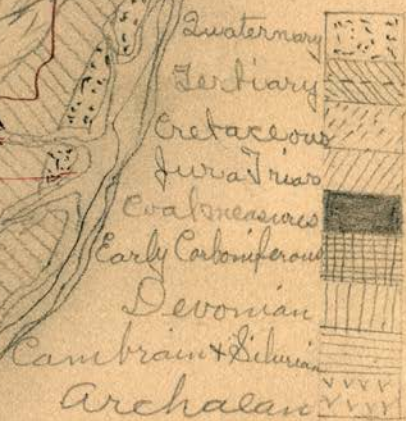 Quaternary
Tertiary
Cretaceous
Jura Trias
Coal measures
Early Carboniferous
Devonian
Cambrain & Silurian
Archaean